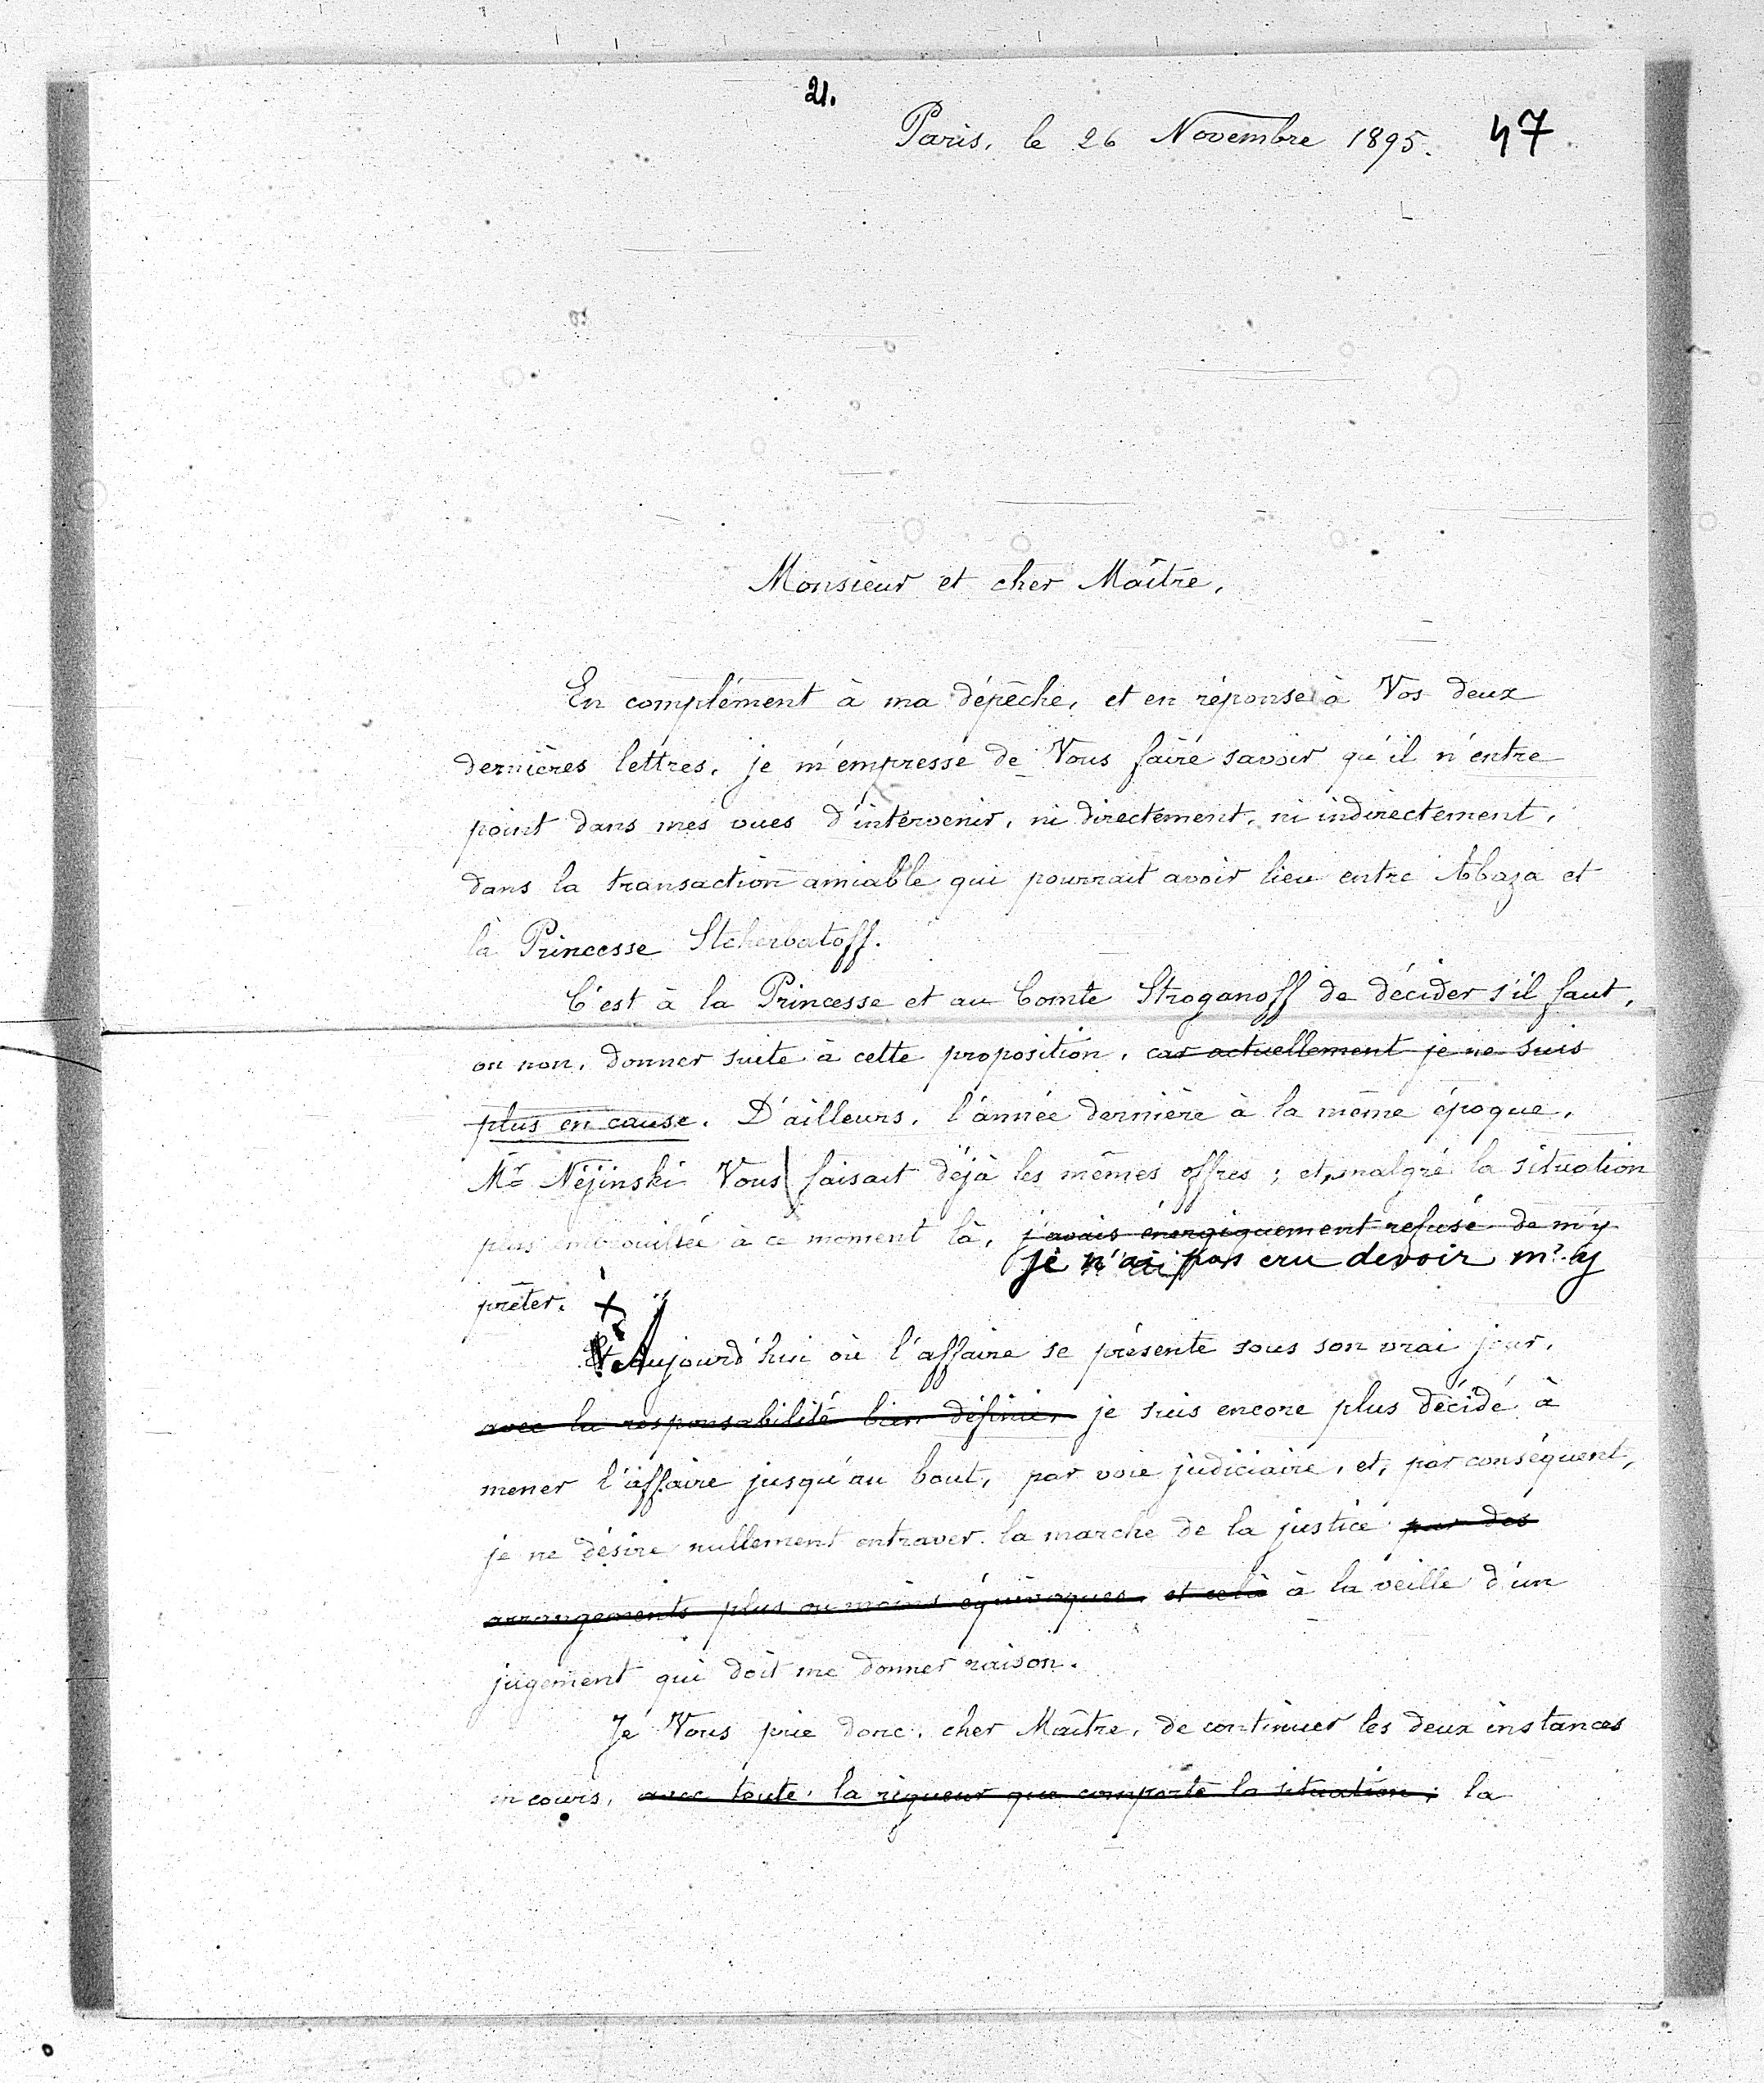 21.
Paris, le 26 Novembre 1895. 47
Monsieur et cher Maître,
En complément à ma dépêche, et en réponse à Vos deux
dernières lettres, je m'empresse de Vous faire savoir qu'il n'entre
point dans mes vues d'intervenir, ni directement, ni indirectement,
dans la transaction amiable qui pourrait avoir lieu entre Abaza et
la Princesse Stcherbatoff.
C'est à la Princesse et au Comte Stroganoff de décider s'il faut,
ou non, donner suite à cette proposition, car actuellement je ne suis
plus en cause. D'ailleurs, l'année dernière à la même époque,
Mr Néjinski Vous faisait déjà les mêmes offres ; et, malgré la situation
plus embrouillée à ce moment là, j'avais énergiquement refusé de m'y
je n'ai pas cru devoir m'y
prêter. X
Et Aujourd'hui où l'affaire se présente sous son vrai jour,
avec la responsabilité bien définie, je suis encore plus décidé à
mener l'affaire jusqu'au bout, par voie judiciaire, et, par conséquent,
je ne désire nullement entraver la marche de la justice par des
arrangements plus ou moins équivoques, et celà à la veille d'un
jugement qui doit me donner raison.
Je Vous prie donc, cher Maître, de continuer les deux instances
en cours, avec toute la rigueur que comporte la situation ; la